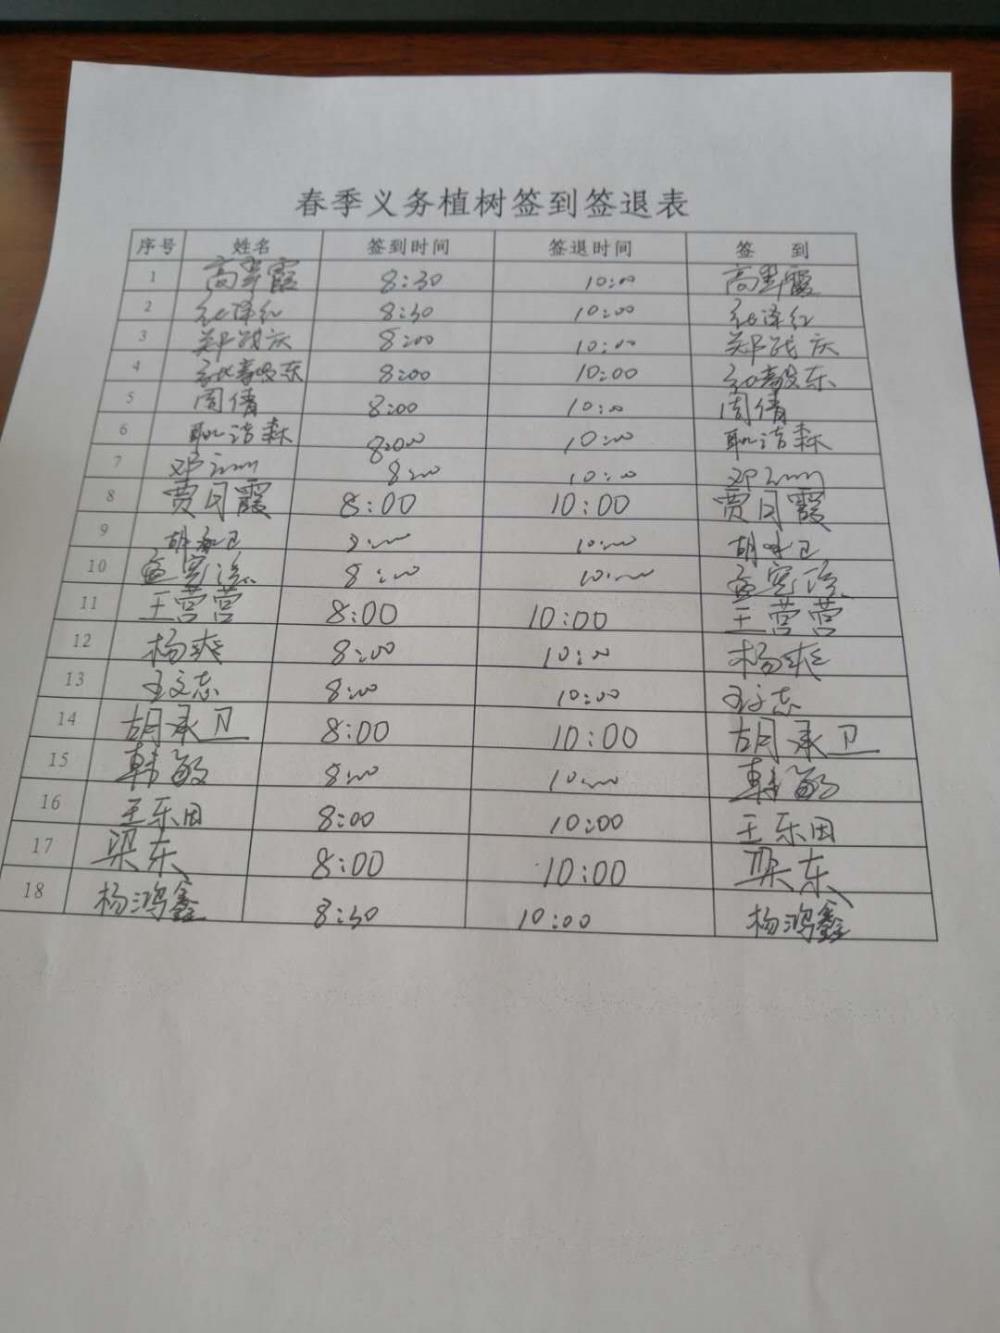 春季义务植树签到签退表
序号 姓名 签到时间 签退时间 签 到
1 高翠霞 8:30 10:00 高翠霞
2 8:30 10:00
3 8:00 10:00
4 8:00 10:00
5 周倩 8:00 10:00 周倩
6 8:00 10:00
7 8:00 10:00
8 贾月霞 8:00 10:00 贾月霞
9 8:00 10:00
10 8:00 10:00
11 王营营 8:00 10:00 王营营
12 杨爽 8:00 10:00 杨爽
13 王文志 8:00 10:00 王文志
14 胡承卫 8:00 10:00 胡承卫
15 韩敏 8:00 10:00 韩敏
16 王乐田 8:00 10:00 王乐田
17 梁东 8:00 10:00 梁东
18 杨鸿鑫 8:30 10:00 杨鸿鑫